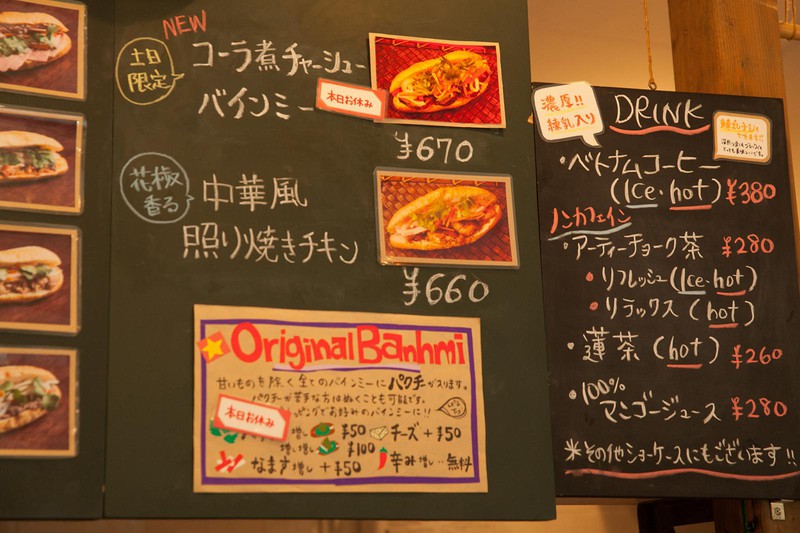 NEW
土日
限定
コーラ煮チャーシュー
バインミー
本日お休み
¥670
花椒
香る
中華風
照り焼きチキン
¥660
Original Banhmi
甘いものを除く全てのバインミーにパクチーが入ります。
パクチーが苦手な方はぬくことも可能です。
ピングでお好みのバインミーに!!
本日お休み
増し ¥50 チーズ +¥50
増し ¥100
なます増し +¥50 辛み増し… 無料
濃厚!!
練乳入り
DRINK
・ベトナムコーヒー
(Ice・hot) ¥380
ノンカフェイン
・アーティーチョーク茶 ¥280
・リフレッシュ(Ice・hot)
・リラックス (hot)
・蓮茶 (hot) ¥260
・100%
マンゴージュース ¥280
*その他ショーケースにもございます!!